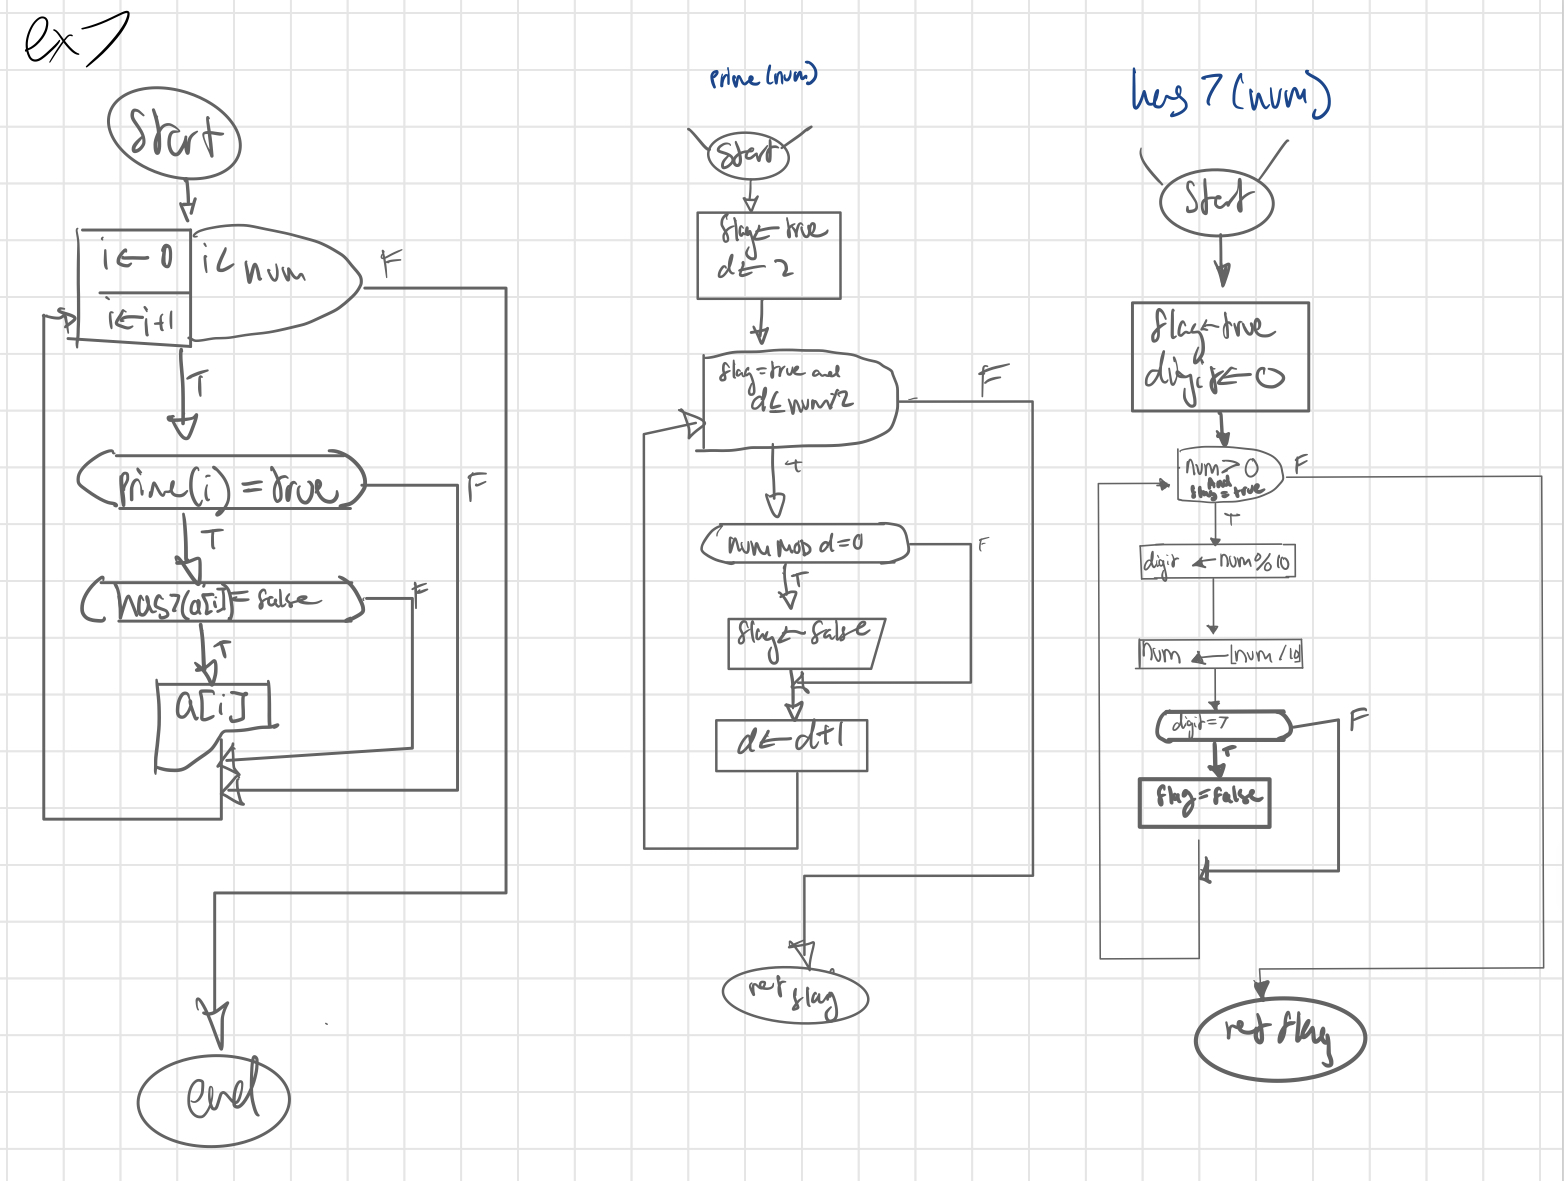 ex7
Start
i ← 0
i < num
F
i ← i+1
T
Prime(i) = true
F
T
has7(a[i]) = false
F
T
a[i]
end
prime(num)
Start
flag ← true
d ← 2
flag = true and
d ≤ num/2
F
t
num MOD d = 0
F
T
flag ← false
d ← d+1
ret flag
has 7(num)
Start
flag ← true
digit ← 0
num > 0
And
flag = true
F
T
digit ← num % 10
num ← ⌊num / 10⌋
digit = 7
F
T
flag = false
ret flag